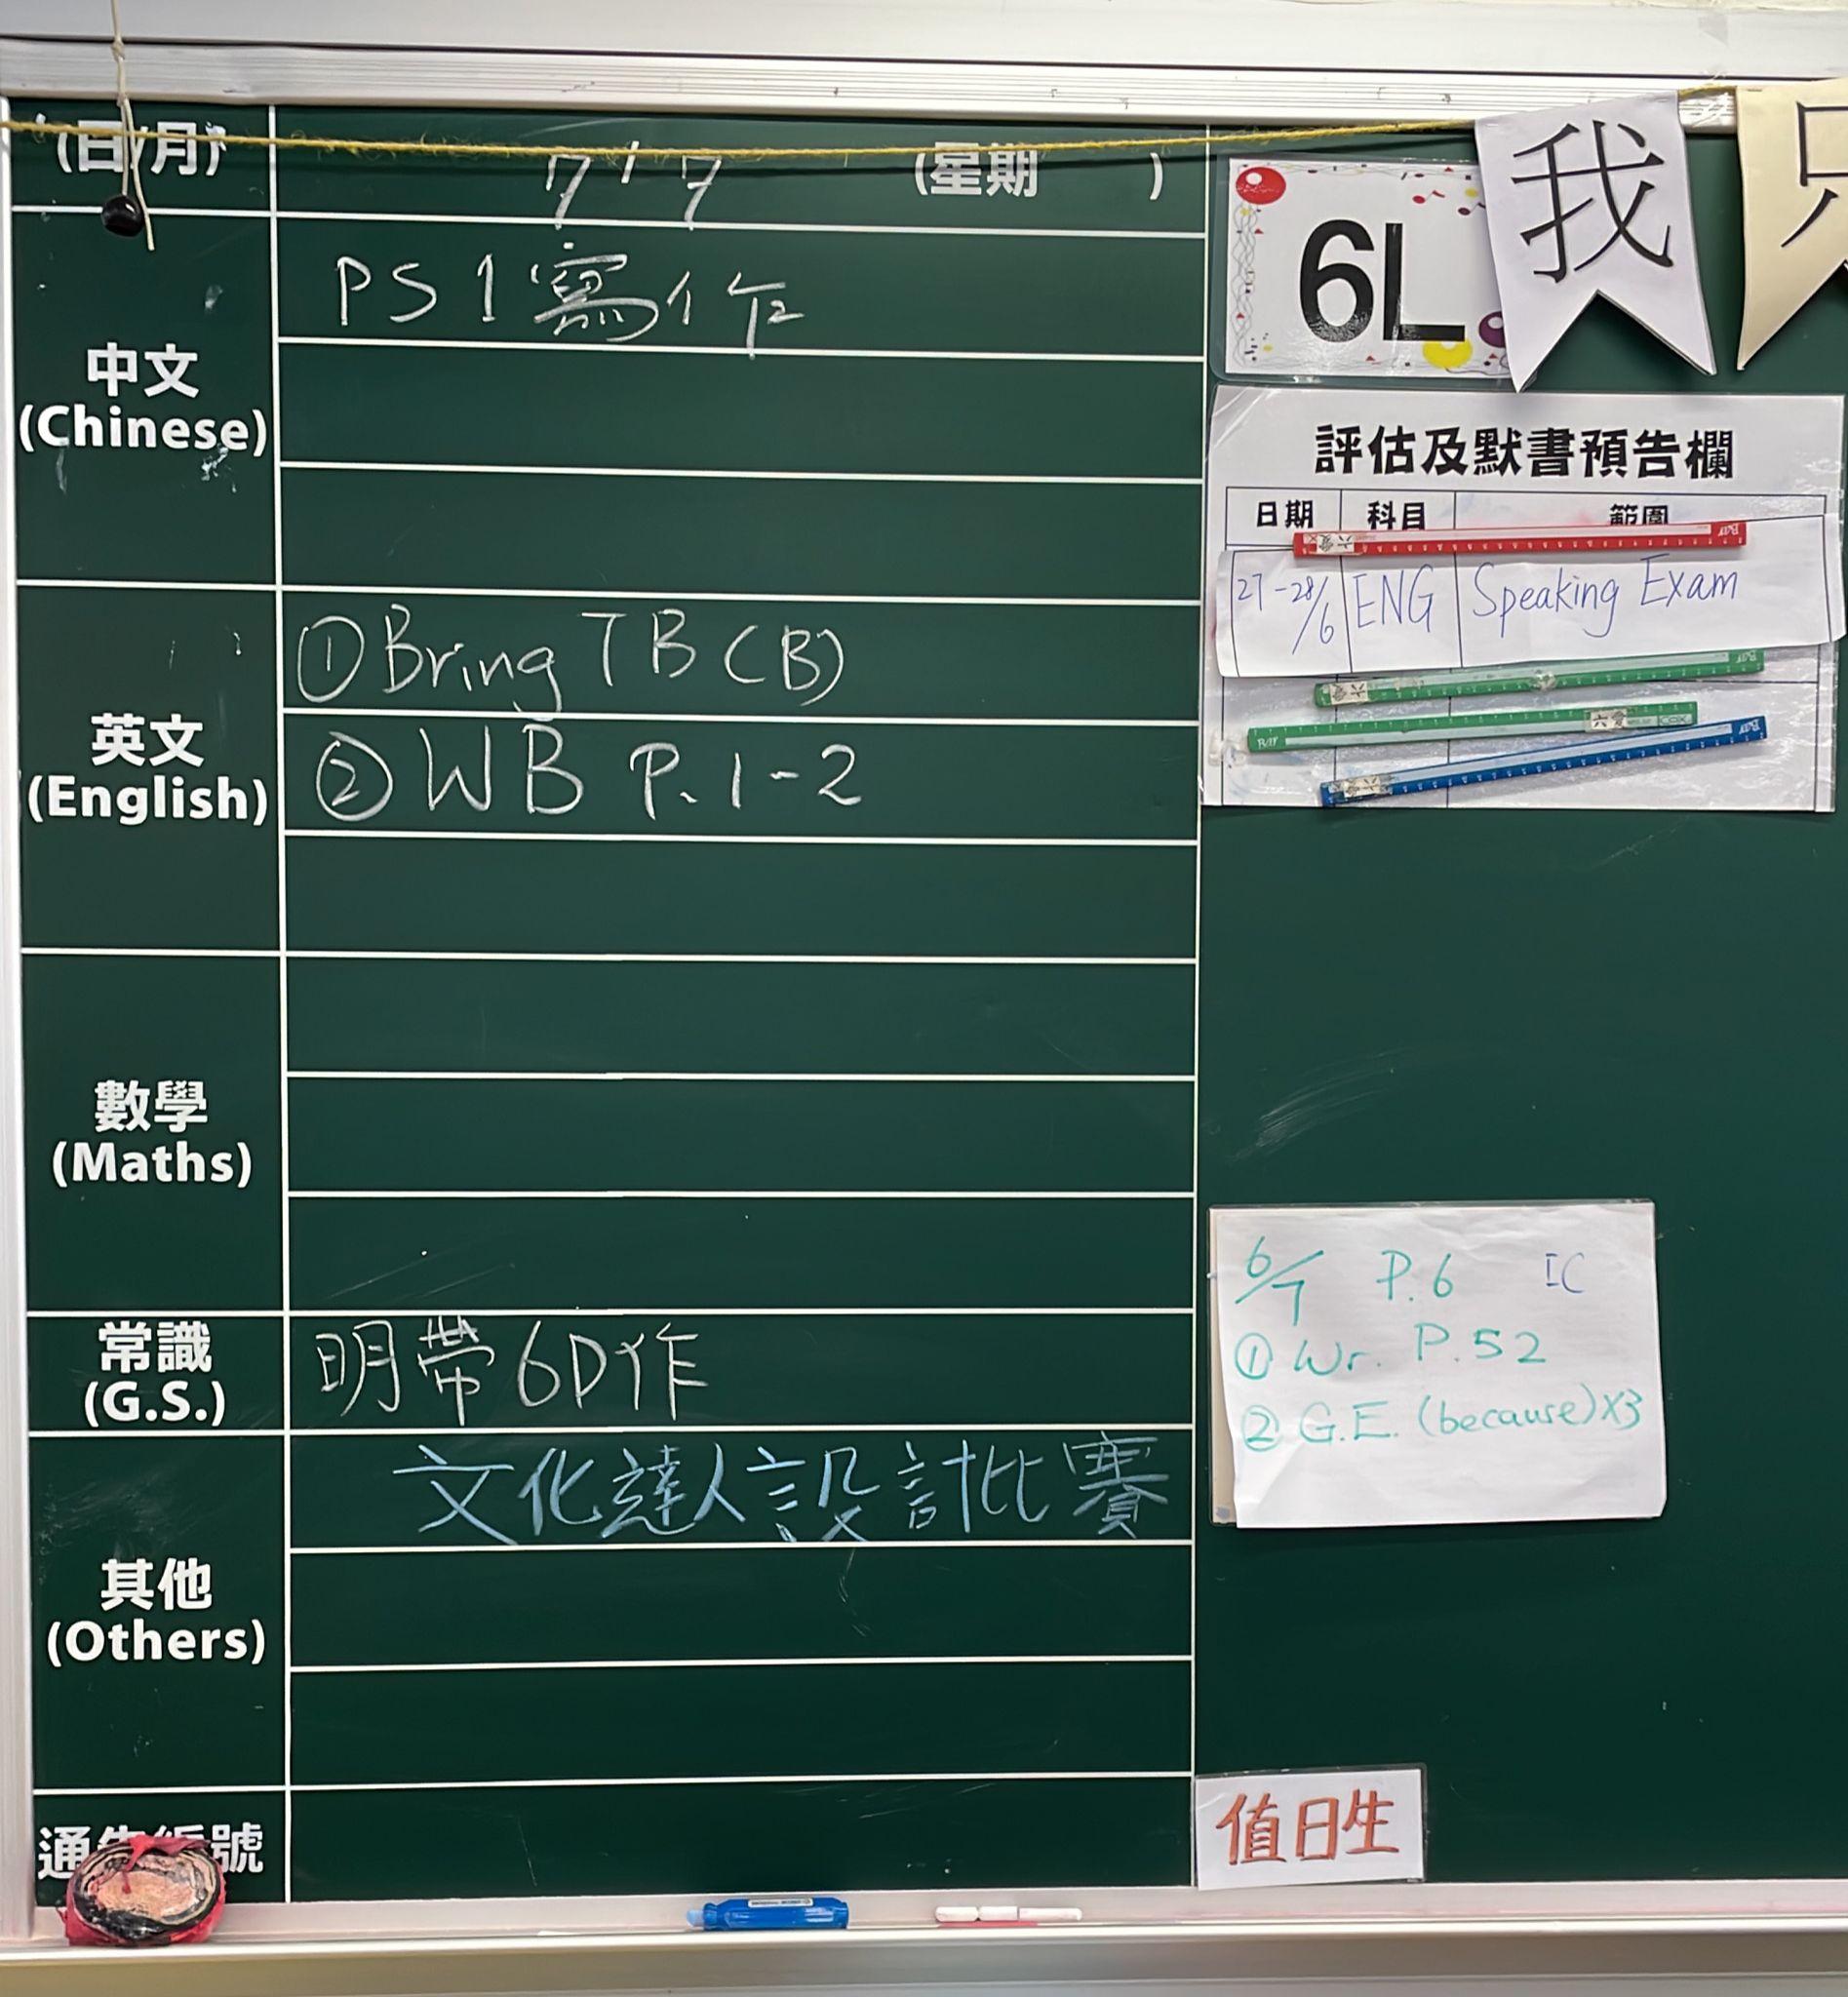 (日/月) 7/7 (星期 )
中文
(Chinese)
PS1寫作
英文
(English)
①Bring TB(B)
②WB P.1-2
數學
(Maths)
常識
(G.S.)
明帶6D作
其他
(Others)
文化達人設計比賽
通告編號
6L
我
只
評估及默書預告欄
日期 科目 範圍
27-28/6 ENG Speaking Exam
6/7 P.6 IC
① Wr. P.52
② G.E. (because)X3
值日生